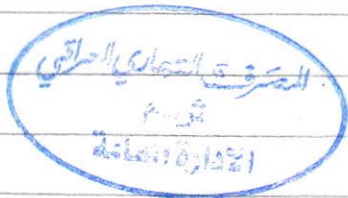 المصرف التجاري العراقي
ش.م
الادارة العامة